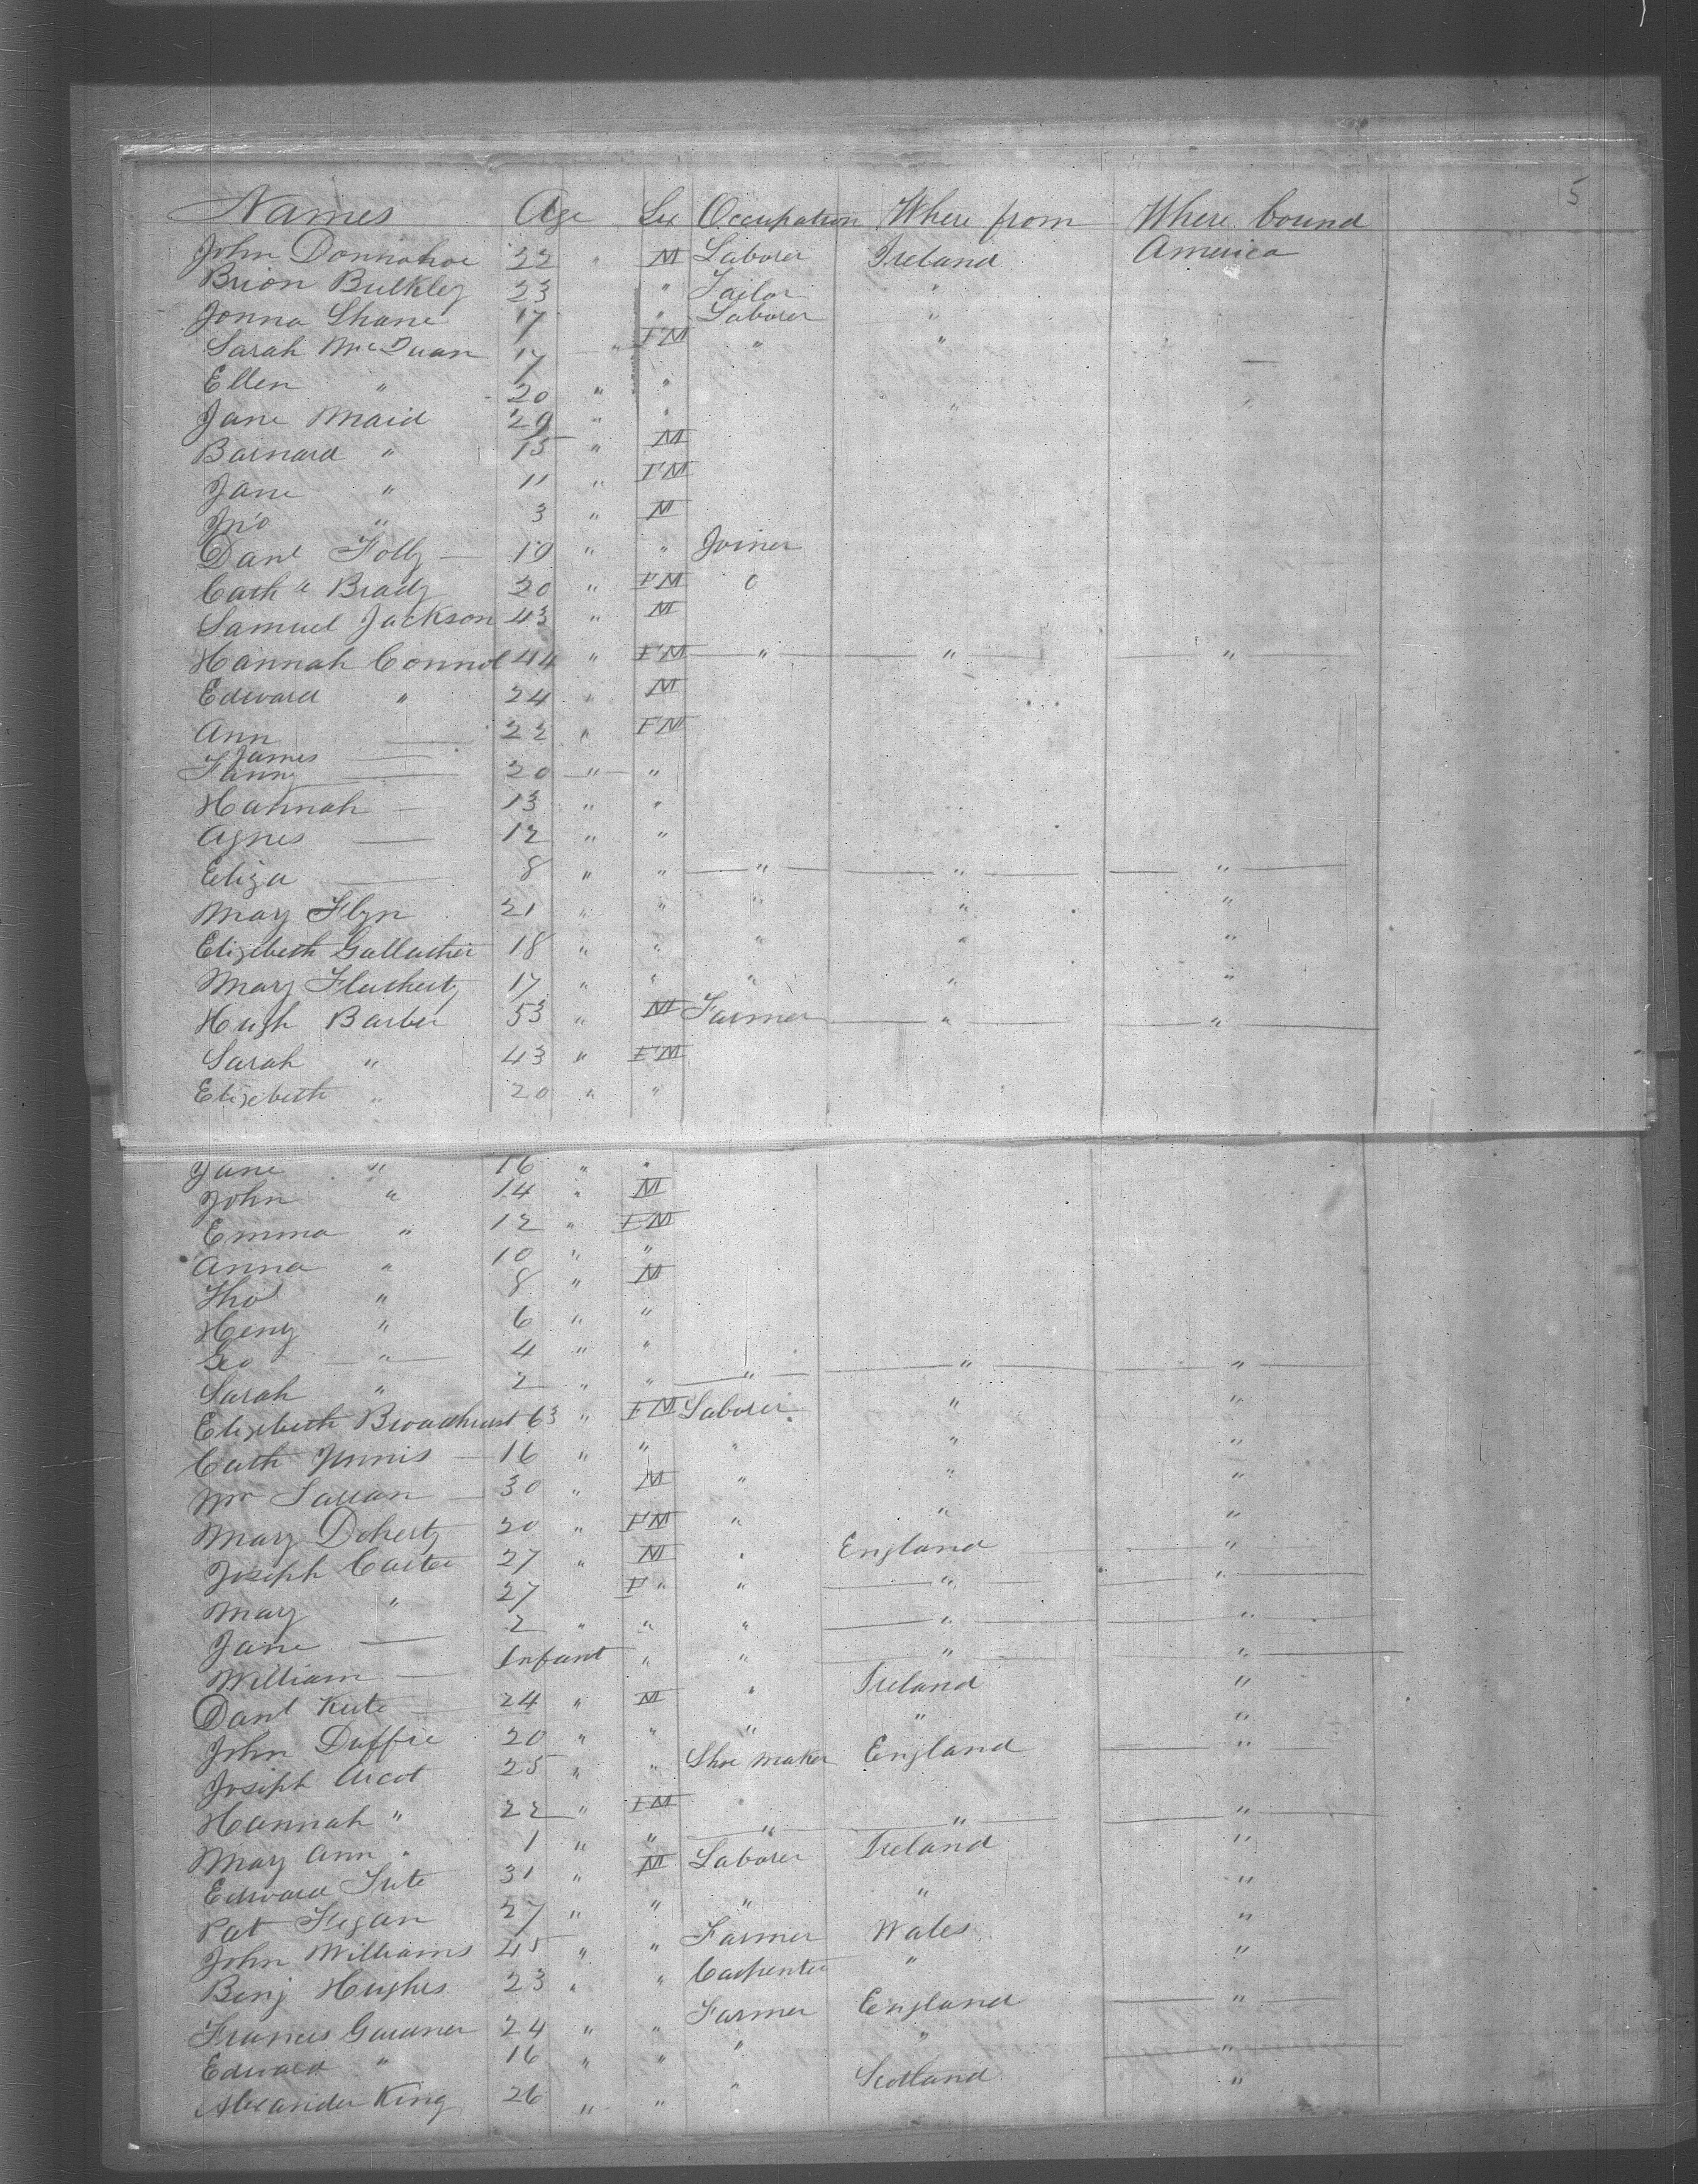 5
Names Age Sex Occupation Where from Where bound
John Donnohoe 22 " M Laborer Ireland America
Brion Bulkley 23 " Tailor "
Jonna Shane 17 " Laborer "
Sarah McDuan 17 " FM " "
Ellen " 20 " "
Jane Maid 29 " " " "
Barnard " 15 " M
Jane " 11 " FM
Jno " 3 " M
Danl Folly 19 " " Joiner
Cath " Brady 20 " FM
Samuel Jackson 43 " M
Hannah Connol 44 " FM " " "
Edward " 24 " M
Ann — 22 " FM
James —
Fanny — 20 " "
Hannah — 13 " "
Agnes — 12 " "
Eliza — 8 " " " " "
Mary Flyn 21 " " " " "
Elizebeth Gallacher 18 " " " " "
Mary Flacherty 17 " " " " "
Hugh Barber 53 " M Farmer " "
Sarah " 43 " FM
Elizebeth " 20 " "
Jane " 16 " "
John " 14 " M
Emma " 12 " FM
Anna " 10 " "
Thos " 8 " M
Heny " 6 " "
Geo " 4 " " " "
Sarah " 2 " " "
Elizebeth Broadhurst 63 " FM Laborer " "
Cath 16 " " " " "
30 " M " " "
Mary Doherty 20 " FM " " "
Joseph Carter 27 " M " England "
Mary " 27 F " " " "
Jane — 2 " " " " "
William — Infant " " " "
Danl Kute 24 " M " Ireland "
John Duffie 20 " " " " "
Joseph Arcot 25 " " Shoe maker England "
Hannah " 22 " FM "
Mary Ann " 1 " " " " "
Edward Tute 31 " M Laborer Ireland "
Pat Fegan 27 " " " " "
John Williams 45 " " Farmer Wales "
Benj Hughes 23 " " Carpenter " "
Frances Gardner 24 " " Farmer England "
Edward " 16 " " " " "
Alexander King 26 " " " Scotland "